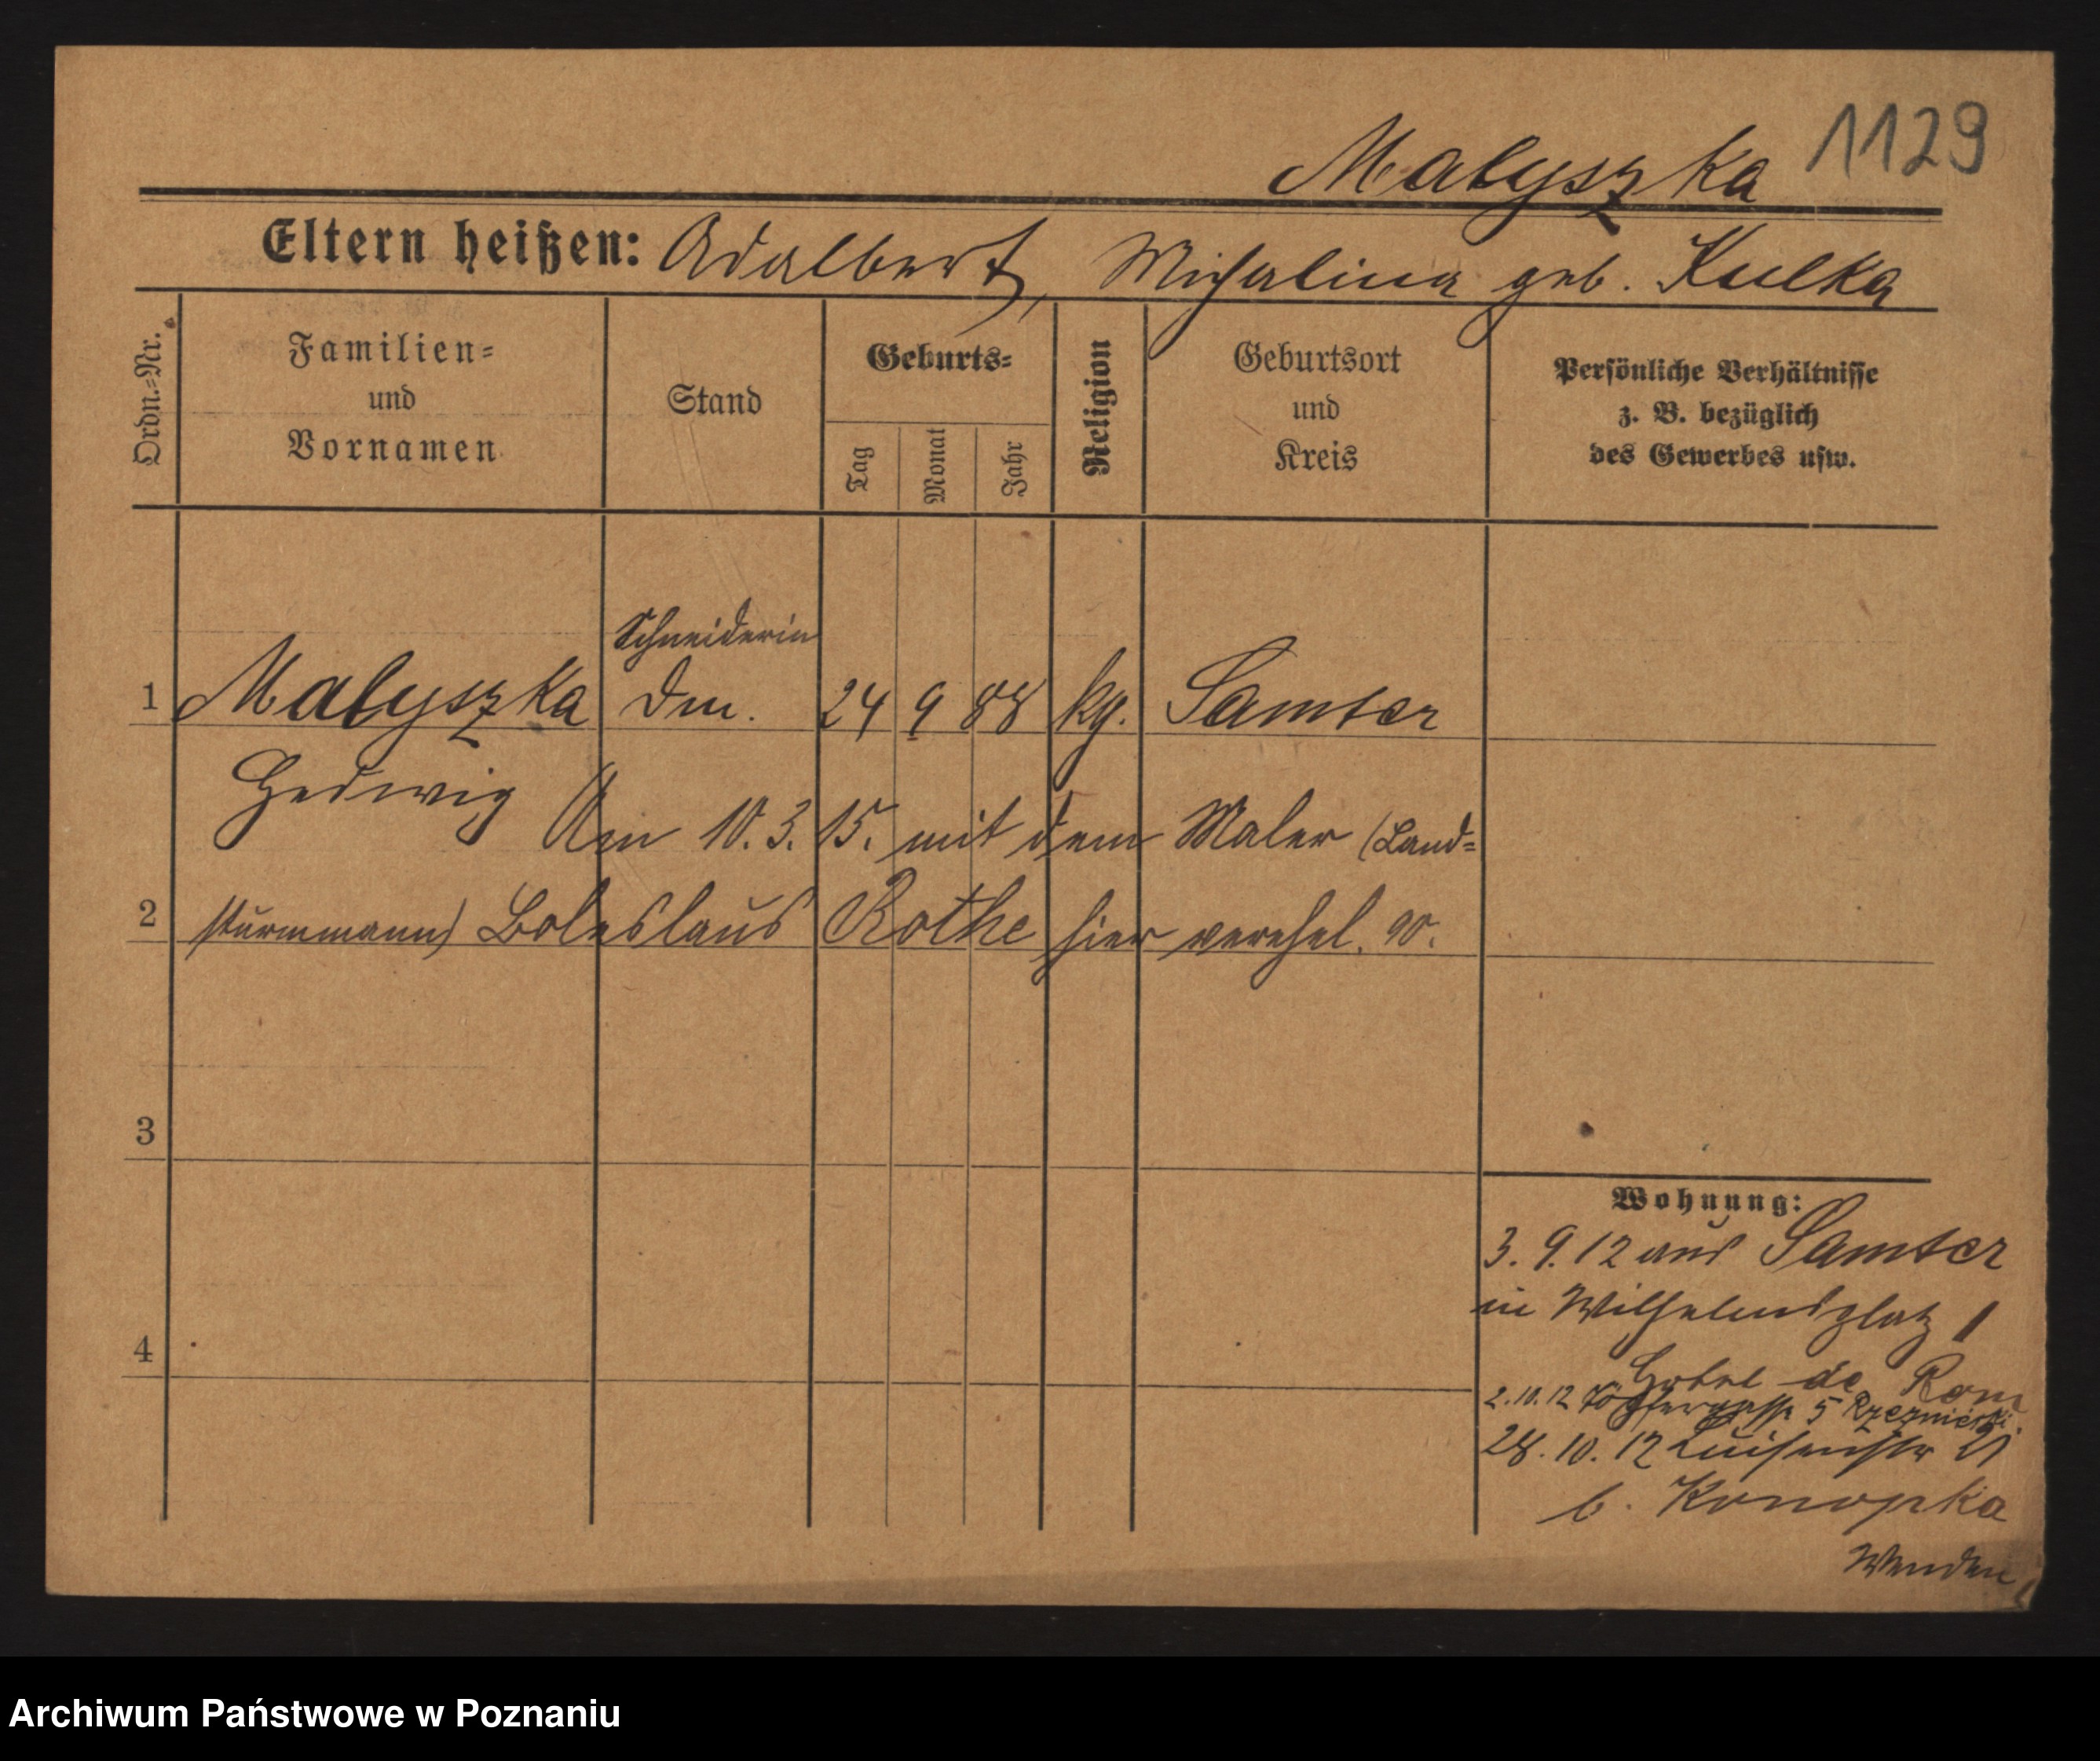 1129
Malyszka
Eltern heißen: Adalbert, Michalina geb. Kulka
Ordn.=Nr.
Familien=
und
Vornamen
Stand
Geburts=
Tag
Monat
Jahr
Religion
Geburtsort
und
Kreis
Persönliche Verhältnisse
z. B. bezüglich
des Gewerbes usw.
Schneiderin
1 Malyszka 24 9 88 kg. Samter
Hedwig Am 10. 3. 15. mit dem Maler (Land=
2 sturmmann) Boleslaus Rothe hier verehel.
3
4
Wohnung:
3. 9. 12 aus Samter
in Wilhelmsplatz 1
Hotel de Rom
2. 10. 12 Töpfergasse 5
28. 10. 12 Luisenstr 21
b. Konopka
Wenden
Archiwum Państwowe w Poznaniu